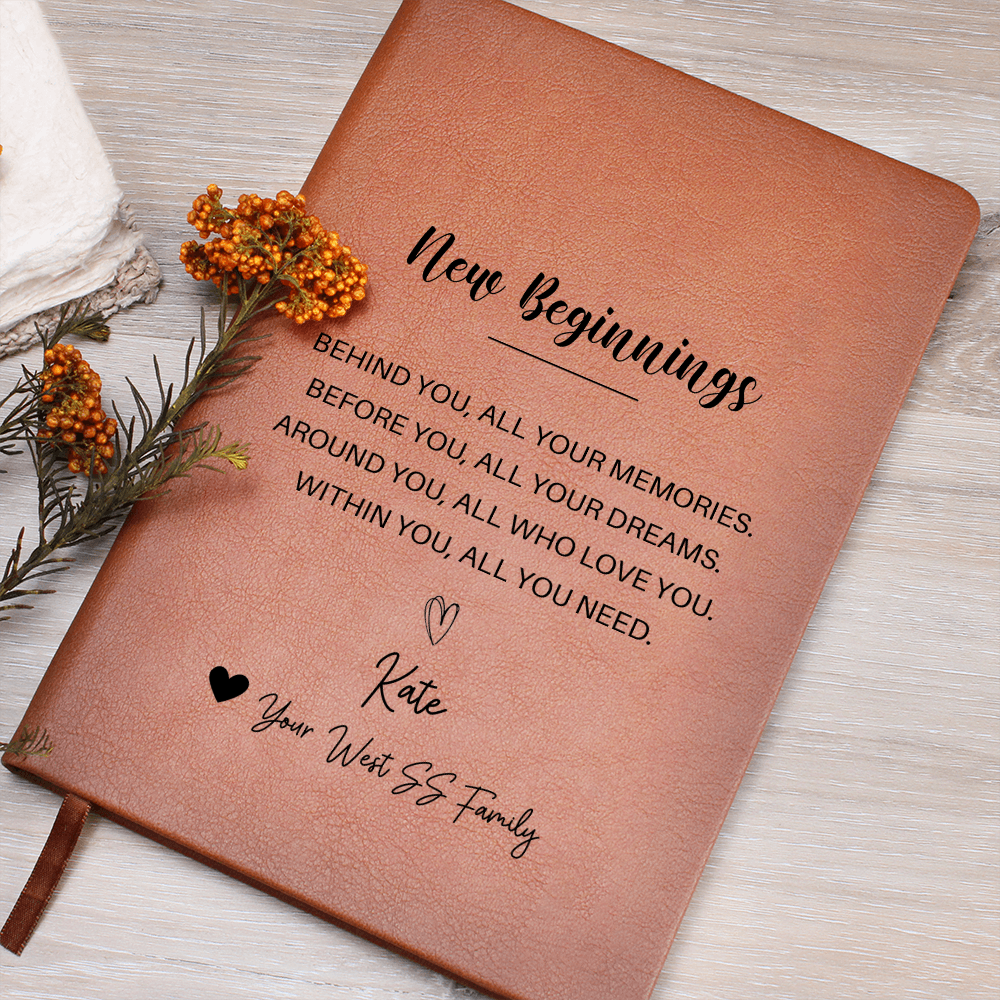 New Beginnings
BEHIND YOU, ALL YOUR MEMORIES.
BEFORE YOU, ALL YOUR DREAMS.
AROUND YOU, ALL WHO LOVE YOU.
WITHIN YOU, ALL YOU NEED.
Kate
Your West SS Family